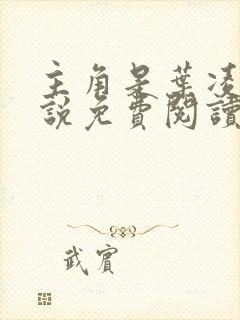 主角是葉凌
說免費閱讀
武賓